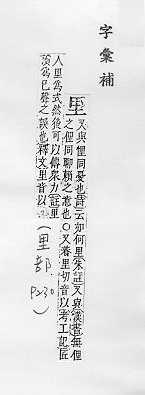 字彙補
里
又與悝同憂也詩云如何里朱註又與漢書無俚
之俚同聊賴之意也○又養里切音以考工記匠
人里爲式然後可以傅衆力註里
讀爲已聲之誤也釋文里音以
(里部 P230)